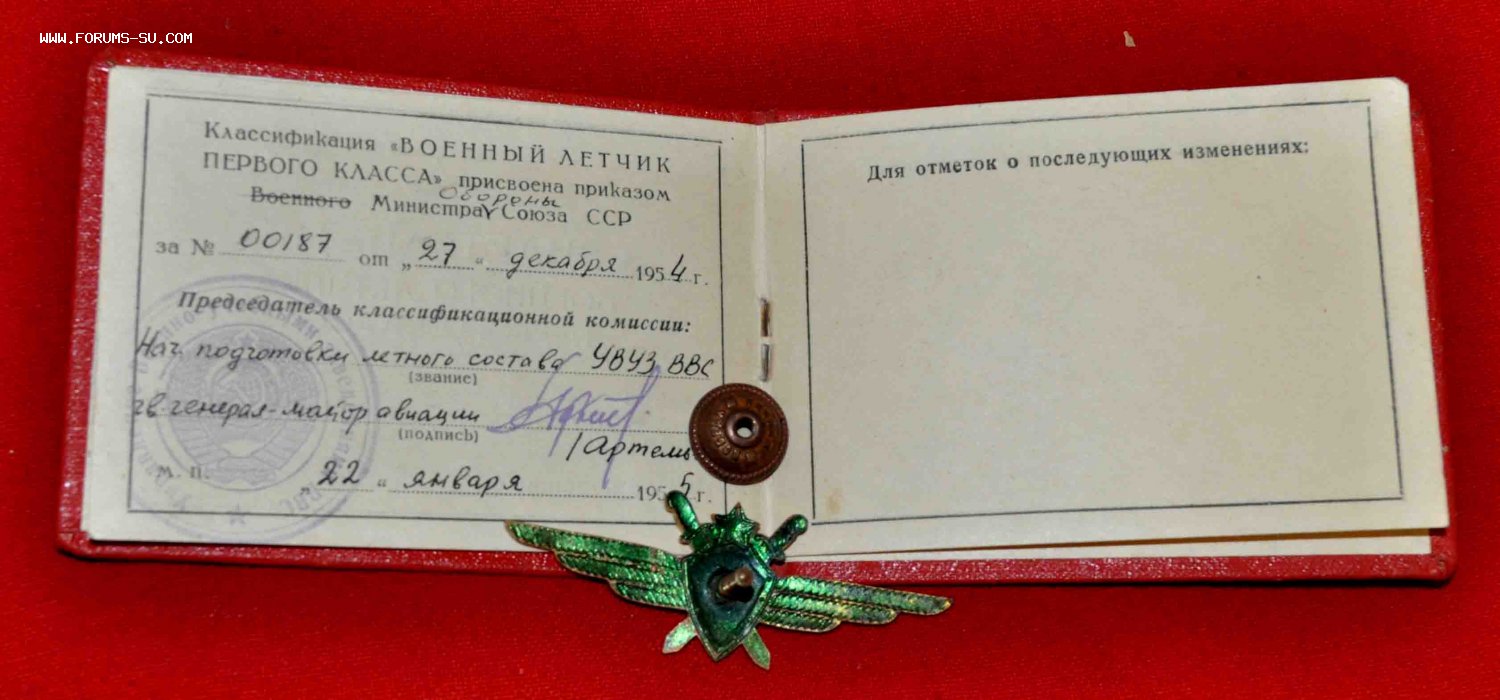 WWW.FORUMS-SU.COM
Классификация «ВОЕННЫЙ ЛЕТЧИК
ПЕРВОГО КЛАССА» присвоена приказом
Обороны
Военного Министра Союза ССР
за № 00187 от „27“ декабря 1954 г.
Председатель классификационной комиссии:
Нач. подготовки летного состава УВУЗ ВВС
(звание)
гв. генерал-майор авиации
(подпись)
/Артемь
М. П.
„22“ января 1955 г.
Для отметок о последующих изменениях: